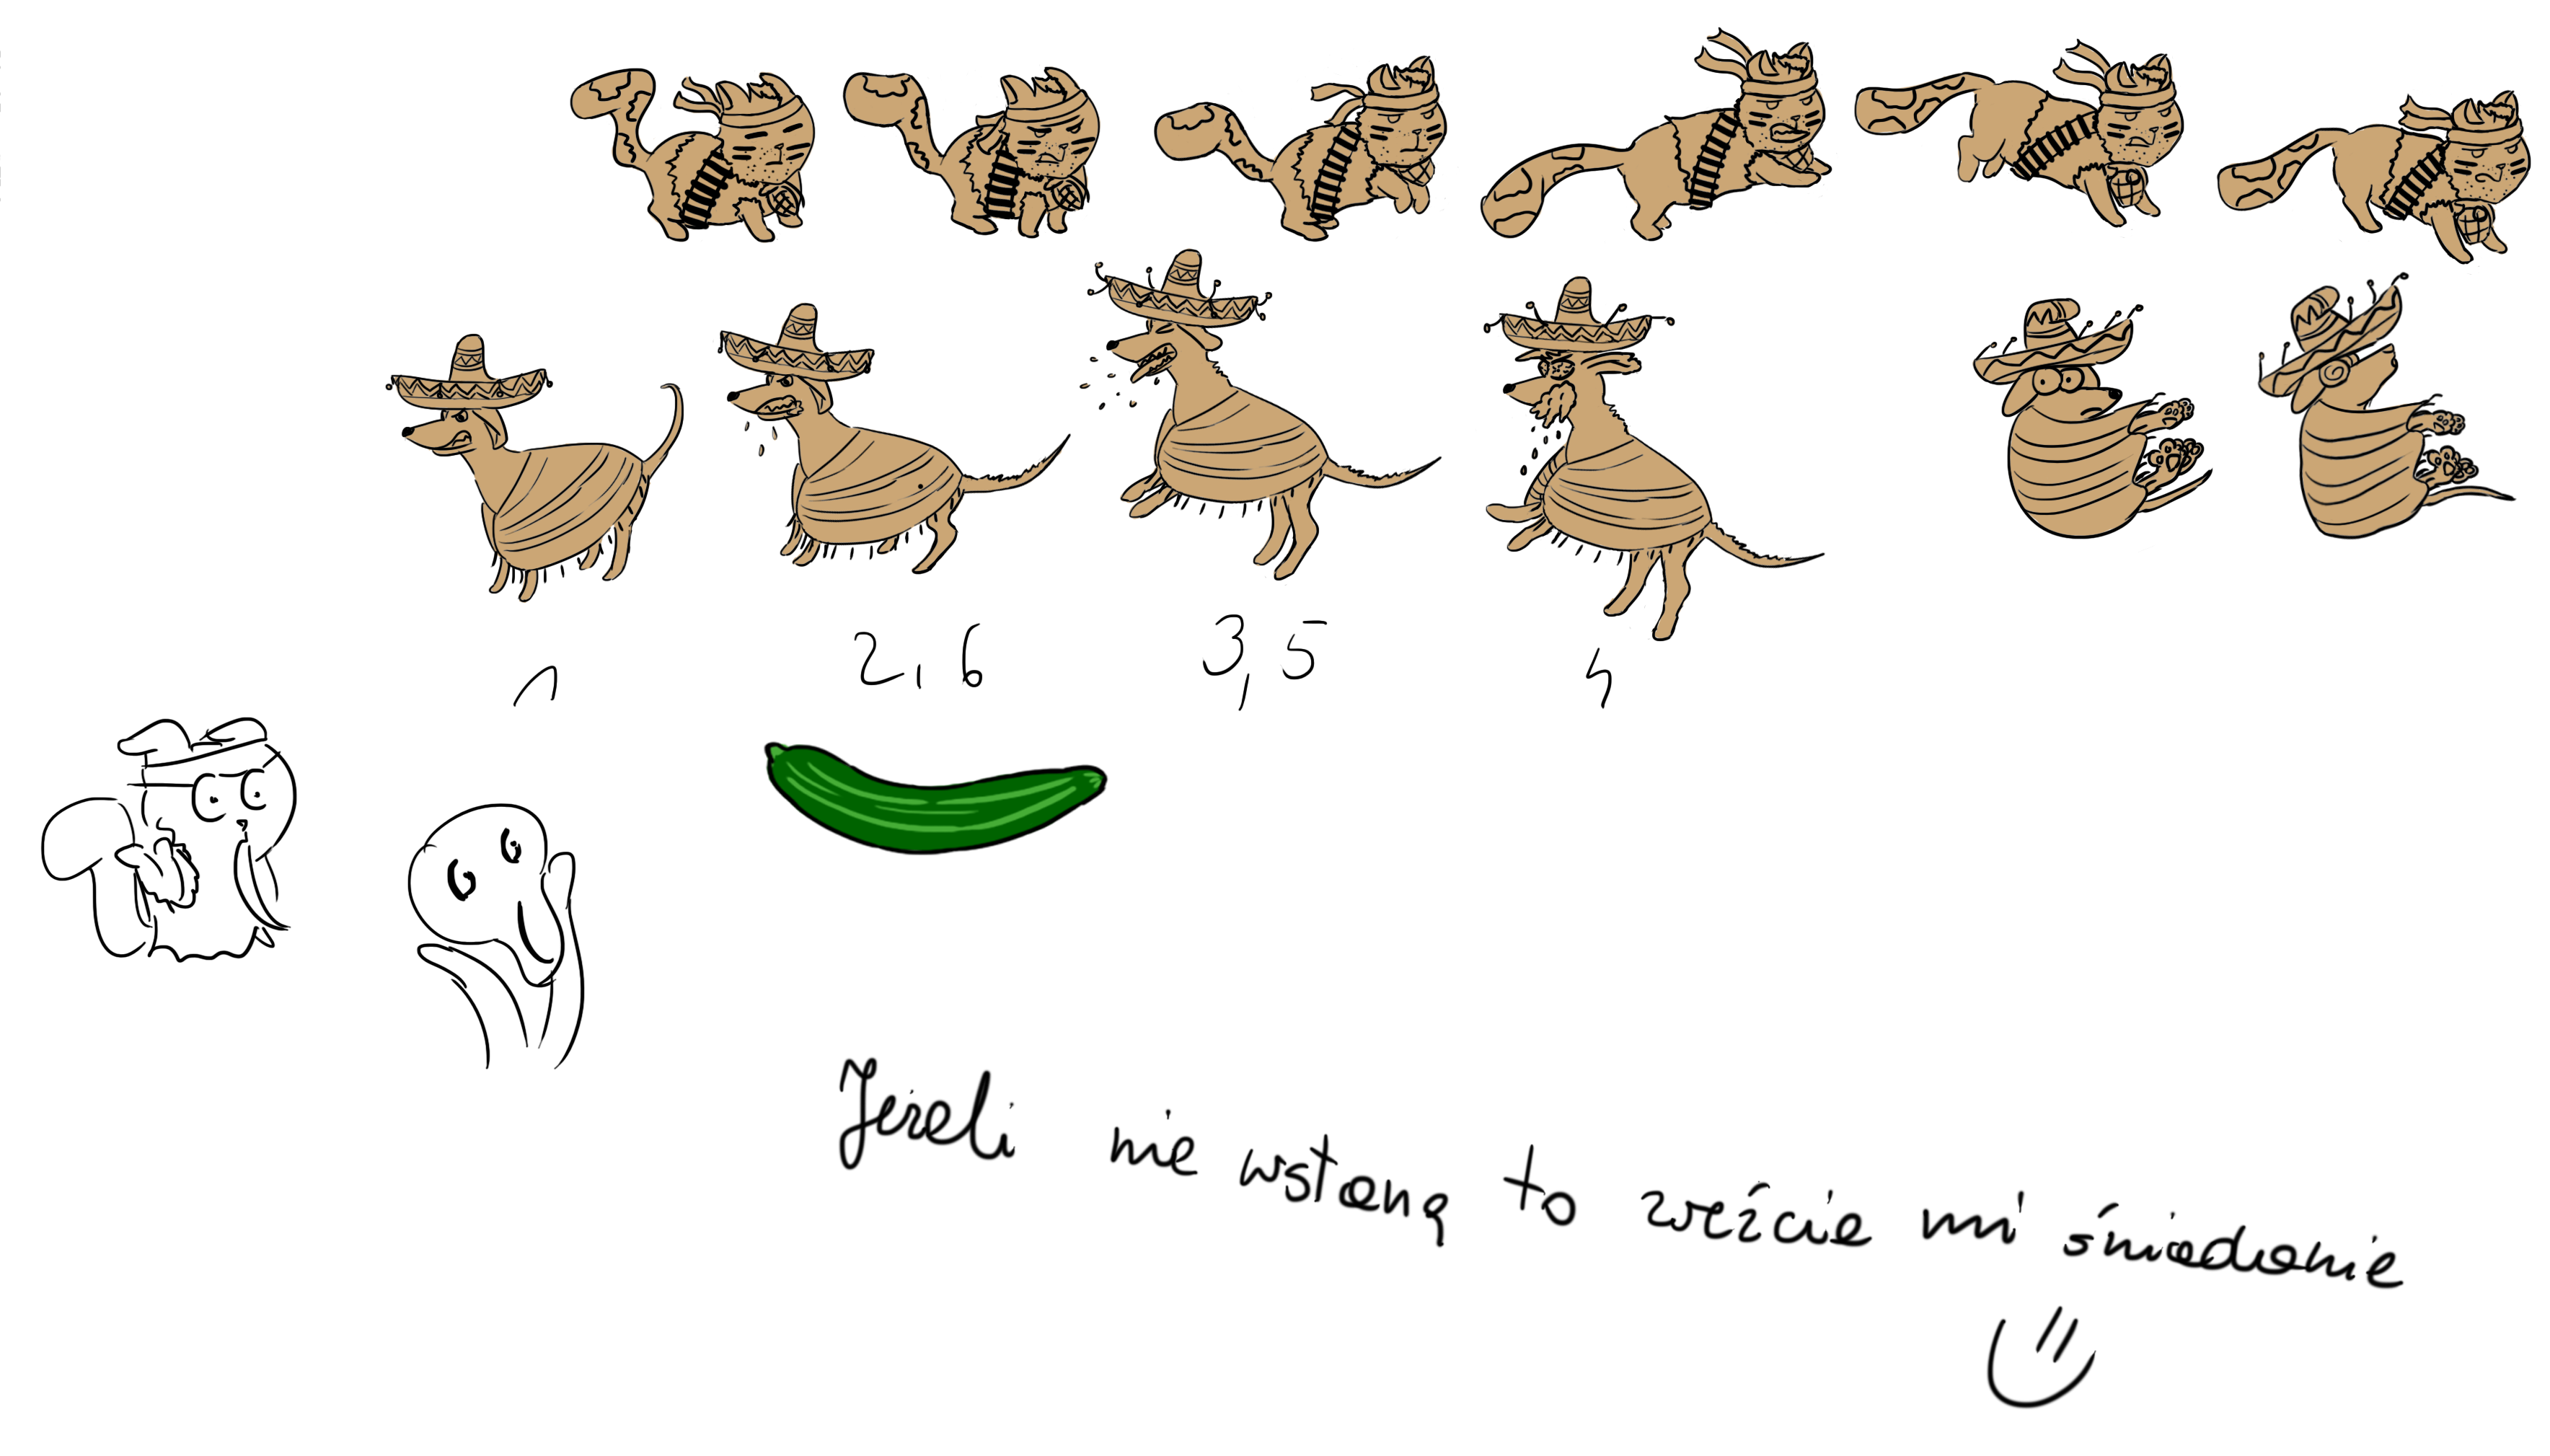 1 2,6 3,5 4
Jeżeli nie wstanę to weźcie mi śniadanie